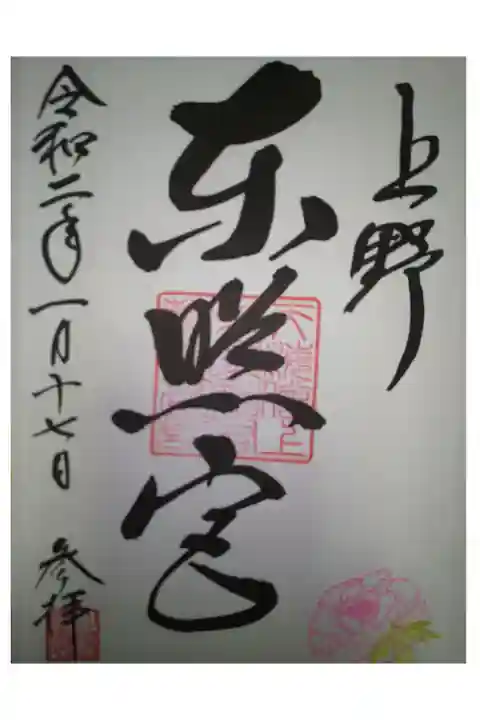 上野
東照宮
令和二年一月十七日 参拝